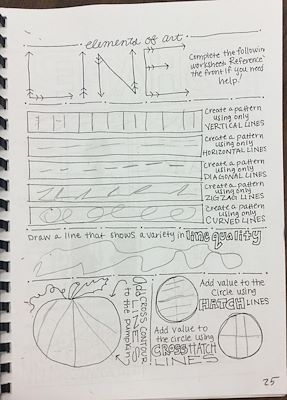 elements of art
LINE
Complete the followin
worksheet. Reference
the front if you need
help!
Create a pattern
using only
VERTICAL LINES
Create a pattern
using only
HORIZONTAL LINES
Create a pattern
using only
DIAGONAL LINES
Create a pattern
using only
ZIGZAG LINES
Create a pattern
using only
CURVED LINES
Draw a line that shows a variety in line quality
Add CROSS CONTOUR
LINES
to the Pumpkin
Add value to the
Circle using
HATCH LINES
Add value to
the circle using
CROSSHATCH
LINES
25